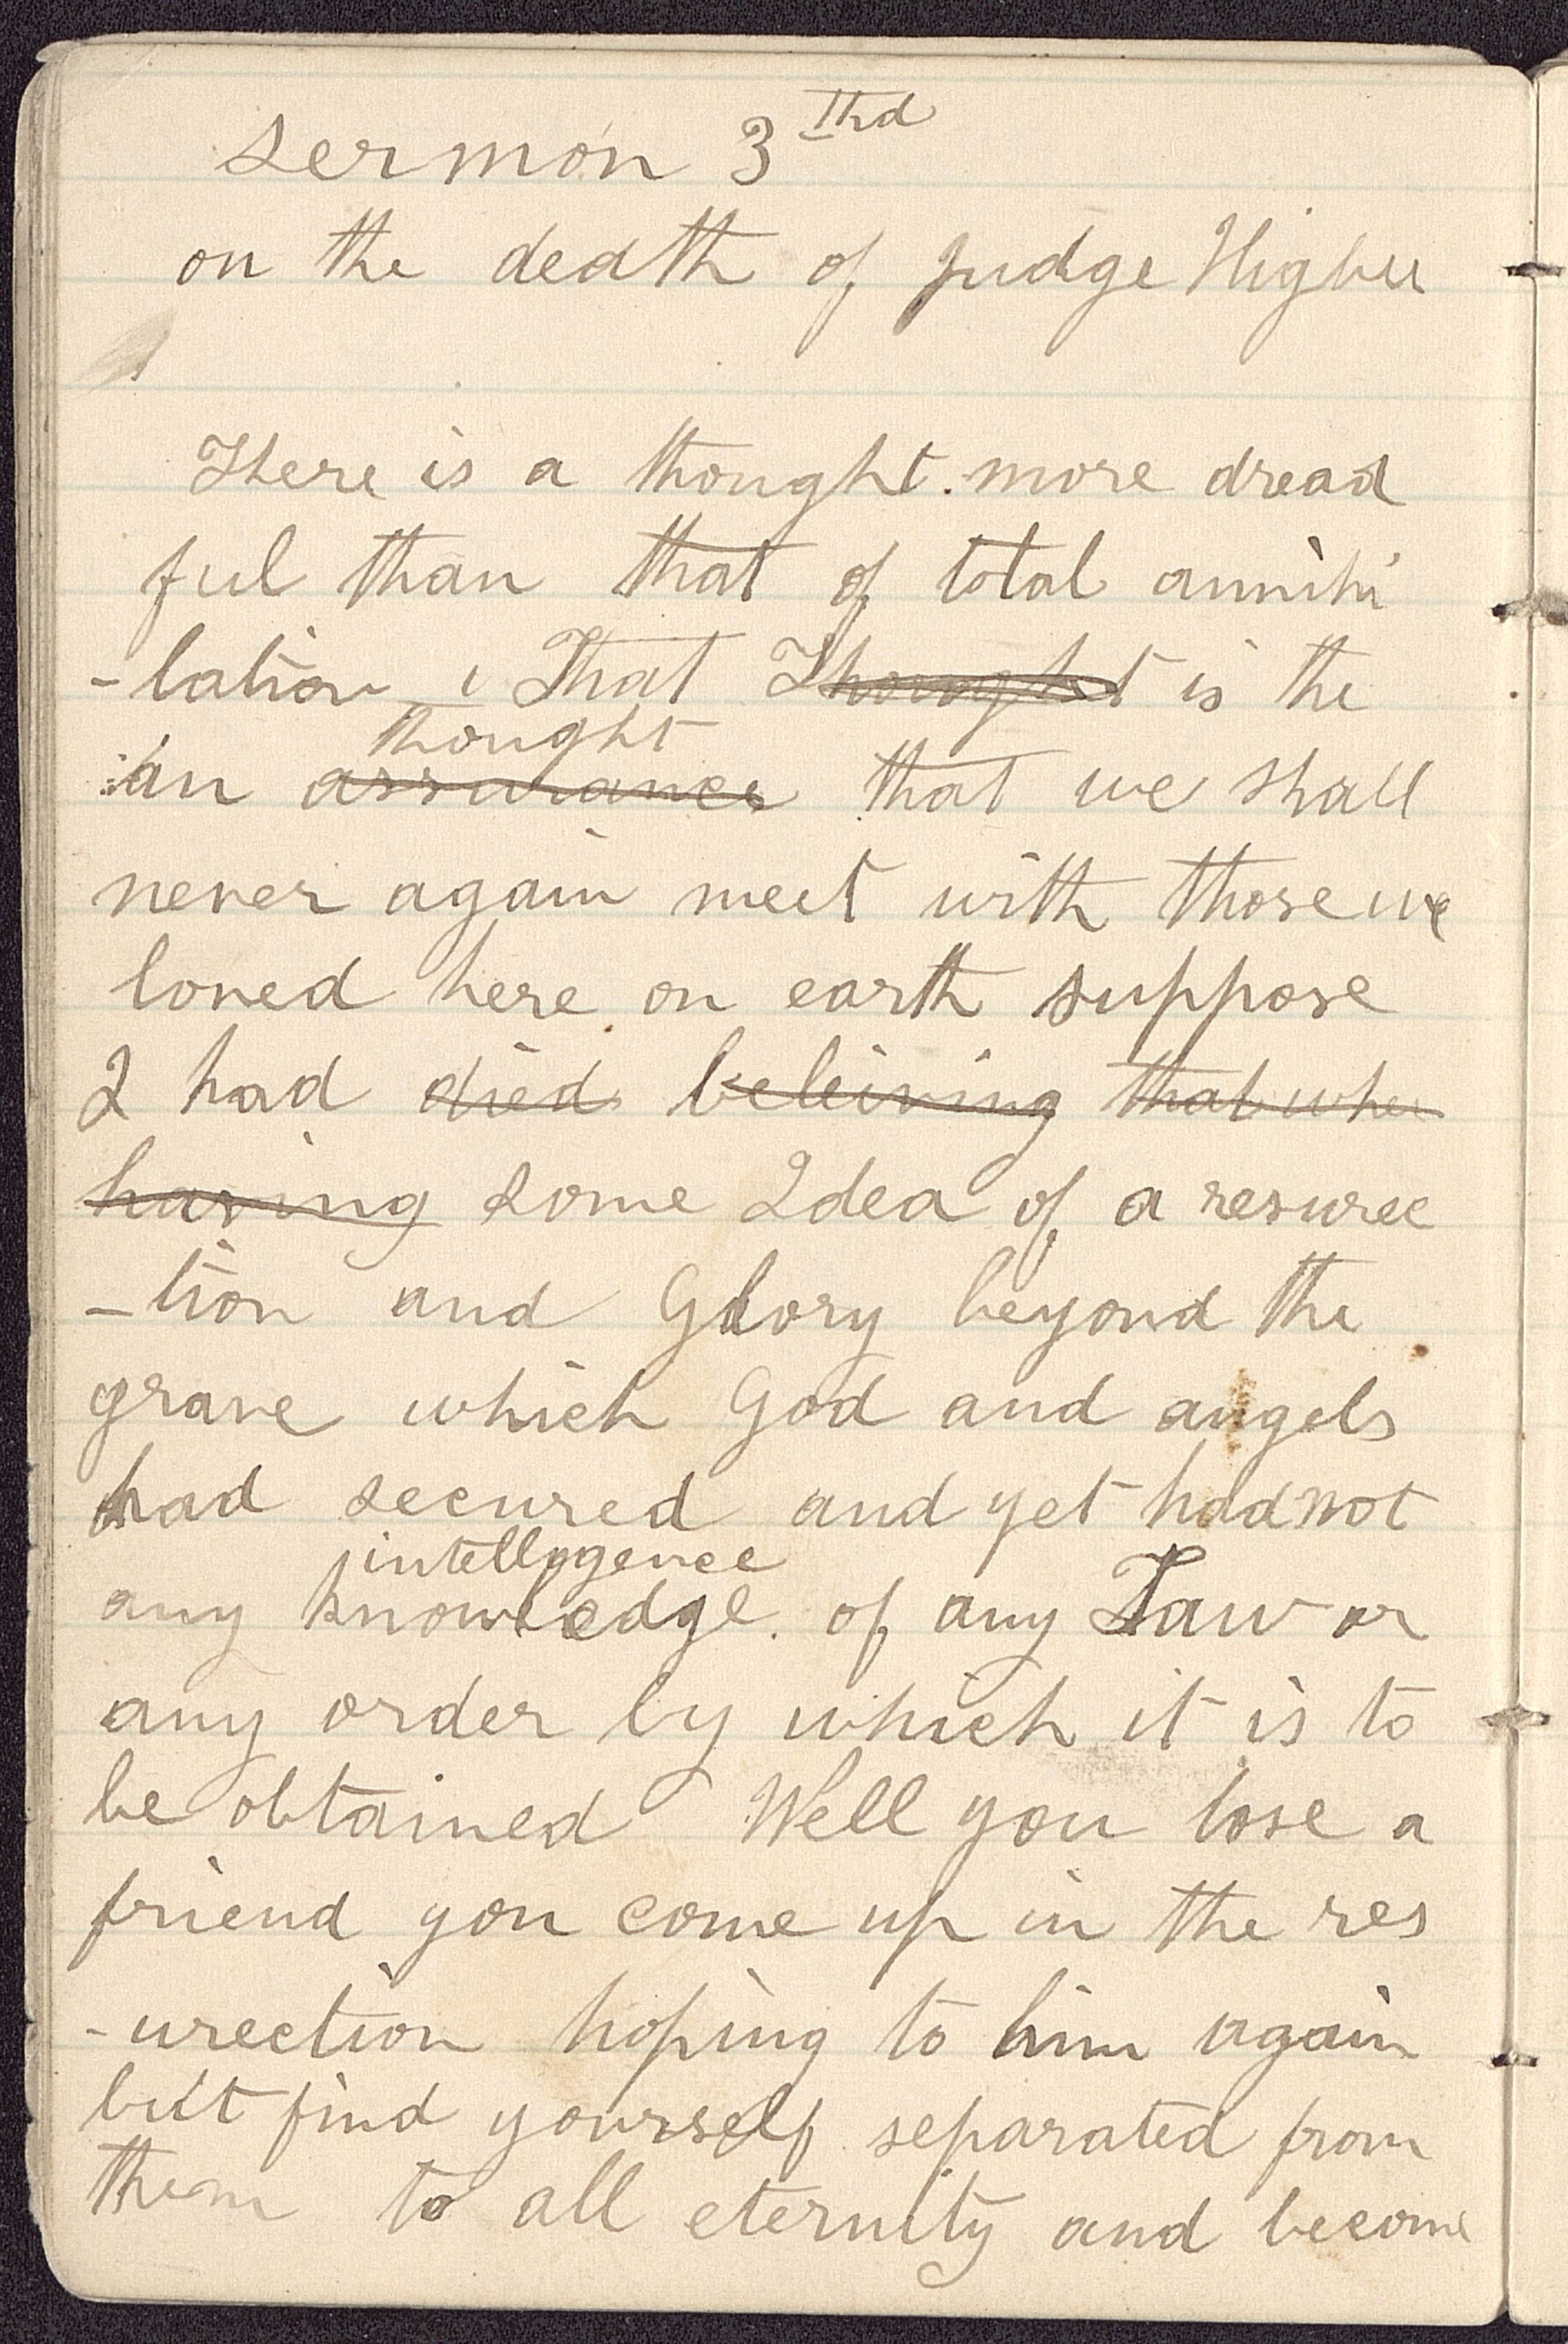 Sermon 3 Thd
on the death of Judge Higbee
There is a thought. more dread
ful than that of total annihi
-lation, That Thought is the
an assurance thought that we shall
never again meet with those we
loved here on earth suppose
I had died beleiving that when
having some Idea of a resurec
-tion and Glory beyond the
grave which God and angels
had secured and yet had not
intelligence
any knowledge. of any Law or
any order by which it is to
be obtained Well you lose a
friend you come up in the res
-urection hoping to him again
but find yourself separated from
them to all eternity and become